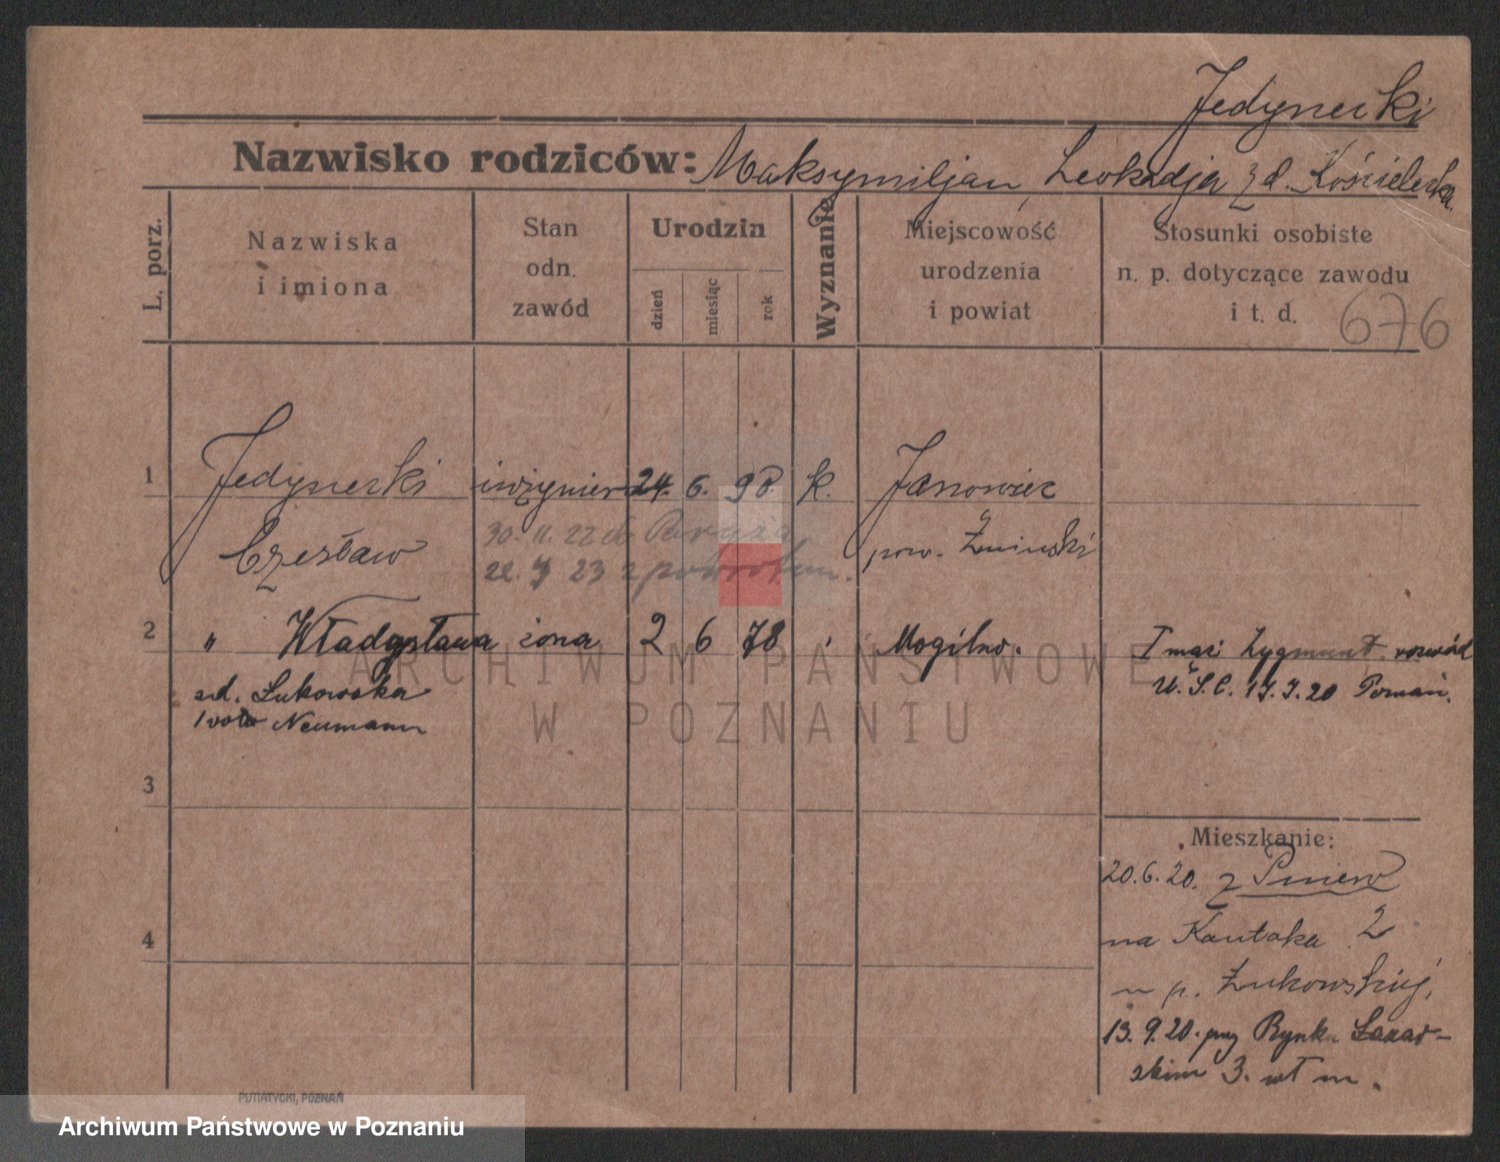 Jedynecki
Nazwisko rodziców: Maksymiljan, Leokadja z d. Kościelska.
L. porz.
Nazwiska
i imiona
Stan
odn.
zawód
Urodzin
dzień
miesiąc
rok
Wyznanie
Miejscowość
urodzenia
i powiat
Stosunki osobiste
n. p. dotyczące zawodu
i t. d.
676
1 Jedynecki inżynier 24. 6. 98 k. Janowiec
Czesław pow. Żniński
30. 11. 22 do Paryża
22. 23 z powrotem.
2 " Władysława żona 2 6 78 Mogilno. I mąż Zygmunt rozwód
zd. Łukowska U.S.C. 20 Poznań.
1 voto Neumann
3
Mieszkanie:
20.6.20. z Pniew
na Kantaka 2
u p. Żukowskiej,
4
13. 9. 20. przy Rynku Łazar-
skim 3. wł m.
PUTIATYCKI, POZNAŃ
ARCHIWUM PAŃSTWOWE
W POZNANIU
Archiwum Państwowe w Poznaniu